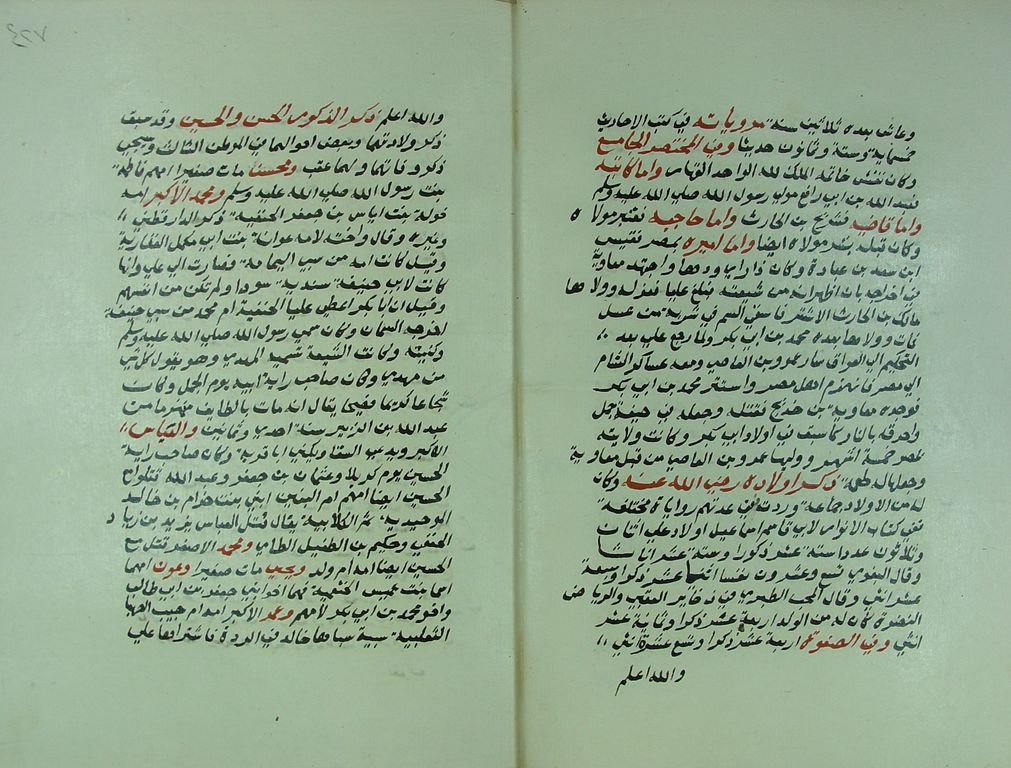 وعاش بعده ثلاثين سنة مروياته في كتب الاحاديث
خمسماية وستة وثمانون حديثا وفي المختصر الجامع
وكان نقش خاتمه الملك لله الواحد القهار واما كاتبه
فعبد الله بن ابي رافع مولى رسول الله صلى الله عليه وسلم
واما قاضيه فشريح بن الحارث واما حاجبه فقنبر مولاه
وكان قبله بشر مولاه ايضا واما اميره بمصر فقيس
ابن سعد بن عبادة وكان ذا راي ودها واجتهد معاوية
في اخراجه بان اظهر انه من شيعته فبلغ عليا فعزله وولاها
مالك بن الحارث الاشتر فاسقي السم في شربة من عسل
فمات وولاها بعده محمد بن ابي بكر ولما رجع علي بعد
التحكيم الى العراق سار عمرو بن العاصي ومعه عساكر الشام
الى مصر فانهزم اهل مصر واستتر محمد بن ابي بكر
فوجده معاوية بن خديج فقتله وجعله في جيفة جمل
واحرقه بالنار كما سبق في اولاد ابي بكر وكانت ولايته
بمصر خمسة اشهر ووليها عمرو بن العاصي من قبل معاوية
وجعلها له طعمة ذكر اولاده رضي الله عنه وكان
له من الاولاد جماعة وردت في عدتهم روايات مختلفة
ففي كتاب الانوار لابي قاسم اسماعيل اولاد علي اثنان
وثلاثون عددا ستة عشر ذكورا وستة عشر اناثا
وقال اليعمري تسع وعشرون نفسا اثنا عشر ذكورا وسبعة
عشر انثى وقال المحب الطبري في ذخاير العقبى والرياض
النضرة كان له من الولد اربعة عشر ذكرا وثمانية عشر
انثى وفي الصفوة اربعة عشر ذكرا وتسع عشرة انثى
والله اعلم
٤٢٧
والله اعلم ذكر الذكور الحسن والحسين وقد سبق
ذكر ولادتهما وبعض احوالهما في الموطن الثالث وسيجي
ذكر وفاتهما ولهما عقب ومحسنا مات صغيرا امهم فاطمة
بنت رسول الله صلى الله عليه وسلم ومحمد الاكبر امه
خولة بنت اياس بن جعفر الحنفية ذكره الدارقطني
وغيره وقال واخته لامه عوانة بنت ابي مكمل الغفارية
وقيل كانت امه من سبي اليمامة فصارت الى علي وانها
كانت لابي حنيفة سندية سوداء ولم تكن من انفسهم
وقيل ان ابا بكر اعطى عليا الحنفية ام محمد من سبي حنيفة
اخرجه السمان وكان سمي رسول الله صلى الله عليه وسلم
وكنيته وكانت الشيعة تسميه المهدي وهو يقول كل مومن
من مهدي وكان صاحب راية ابيه يوم الجمل وكان
شجاعا كريما فصيحا يقال انه مات بالطايف منهزما من
عبد الله بن الزبير سنة احدى وثمانين والعباس
الاكبر ويدعى السقا ويكنى ابا قربة وكان صاحب راية
الحسين يوم كربلا وعثمان بن جعفر وعبد الله قتلوا مع
الحسين ايضا امهم ام البنين ابنى بنت حزام بن خالد
الوحيدية ثم الكلابية يقال قتل العباس يزيد بن زياد
الحنفي وحكيم بن الطفيل الطاي ومحمد الاصغر قتل مع
الحسين ايضا امه ام ولد ويحيى مات صغيرا وعون امهما
اسما بنت عميس الخثعمية فهما اخوا بني جعفر بن ابي طالب
واخو محمد بن ابي بكر لامهم وعمر الاكبر امه ام حبيب الصهبا
التغلبية سبية سباها خالد في الردة فاشتراها علي